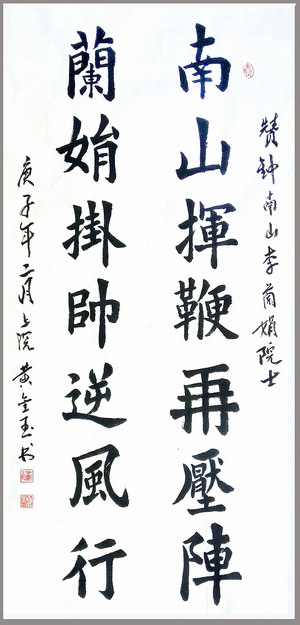 赞钟南山李蘭娟院士
南山揮鞭再壓陣
蘭娟掛帥逆風行
庚子年二月上浣黄金玉书